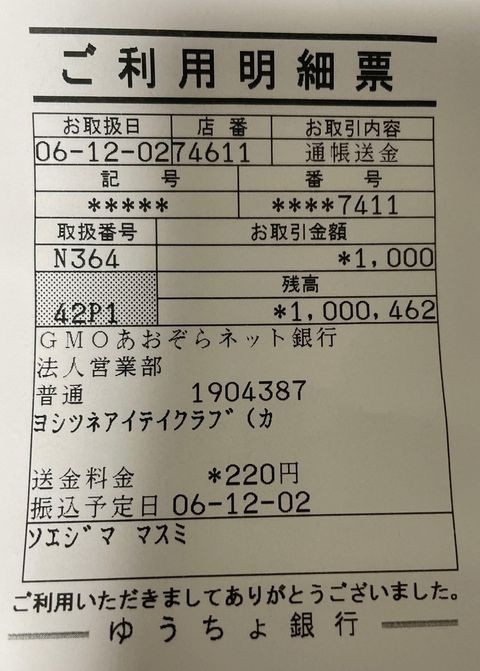 ご利用明細票
お取扱日 店番 お取引内容
06-12-02 74611 通帳送金
記号 番号
***** ****7411
取扱番号 お取引金額
N364 *1,000
残高
42P1 *1,000,462
GMOあおぞらネット銀行
法人営業部
普通 1904387
ヨシツネアイテイクラブ(カ
送金料金 *220円
振込予定日 06-12-02
ソエジマ マスミ
ご利用いただきましてありがとうございました。
ゆうちょ銀行